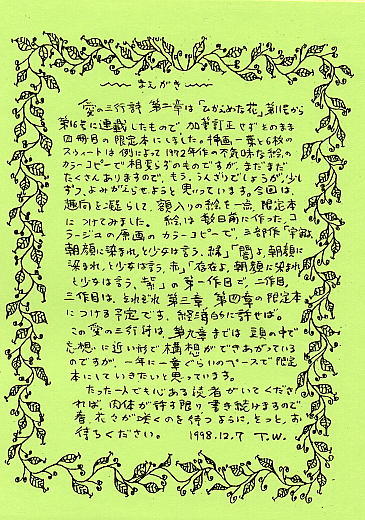 まえがき
愛の三行詩 第二章は「ひかえめな花」第11号から
第16号に連載したもので 加筆訂正せずそのまま
四冊目の限定本にしました。挿画一葉と6枚の
スウィートは例によって1972年作の不気味な絵の
カラーコピーで相変らずのものですが、まだまだ
たくさんありますので、もう、うんざりでしょうが、少し
ずつ、よみがえらせようと思っています。今回は、
趣向を凝らして、額入りの絵を一点、限定本
につけてみました。 絵は数日前に作った、コ
ラージュの原画のカラーコピーで、三部作「宇宙よ、
朝顔に染まれ、と少女は言う、緑」「闇よ、朝顔に
染まれ、と少女は言う、赤」「存在よ、朝顔に染まれ、
と少女は言う、紫」の第一作目で、二作目、
三作目は、それぞれ 第三章、第四章の限定本
につける予定です。経済的に許せば。
この愛の三行詩は、第九章までは 頭の中で
妄想に近い形で構想ができあがっている
のですが、一年に一章ぐらいのペースで限定
本にしていきたいと思っています。
たった一人でも心ある読者がいてくださ
れば、肉体が許す限り 書き続けますので
春、花々が咲くのを待つように、そっと、お
待ちください。 1998.12.7 T.W.